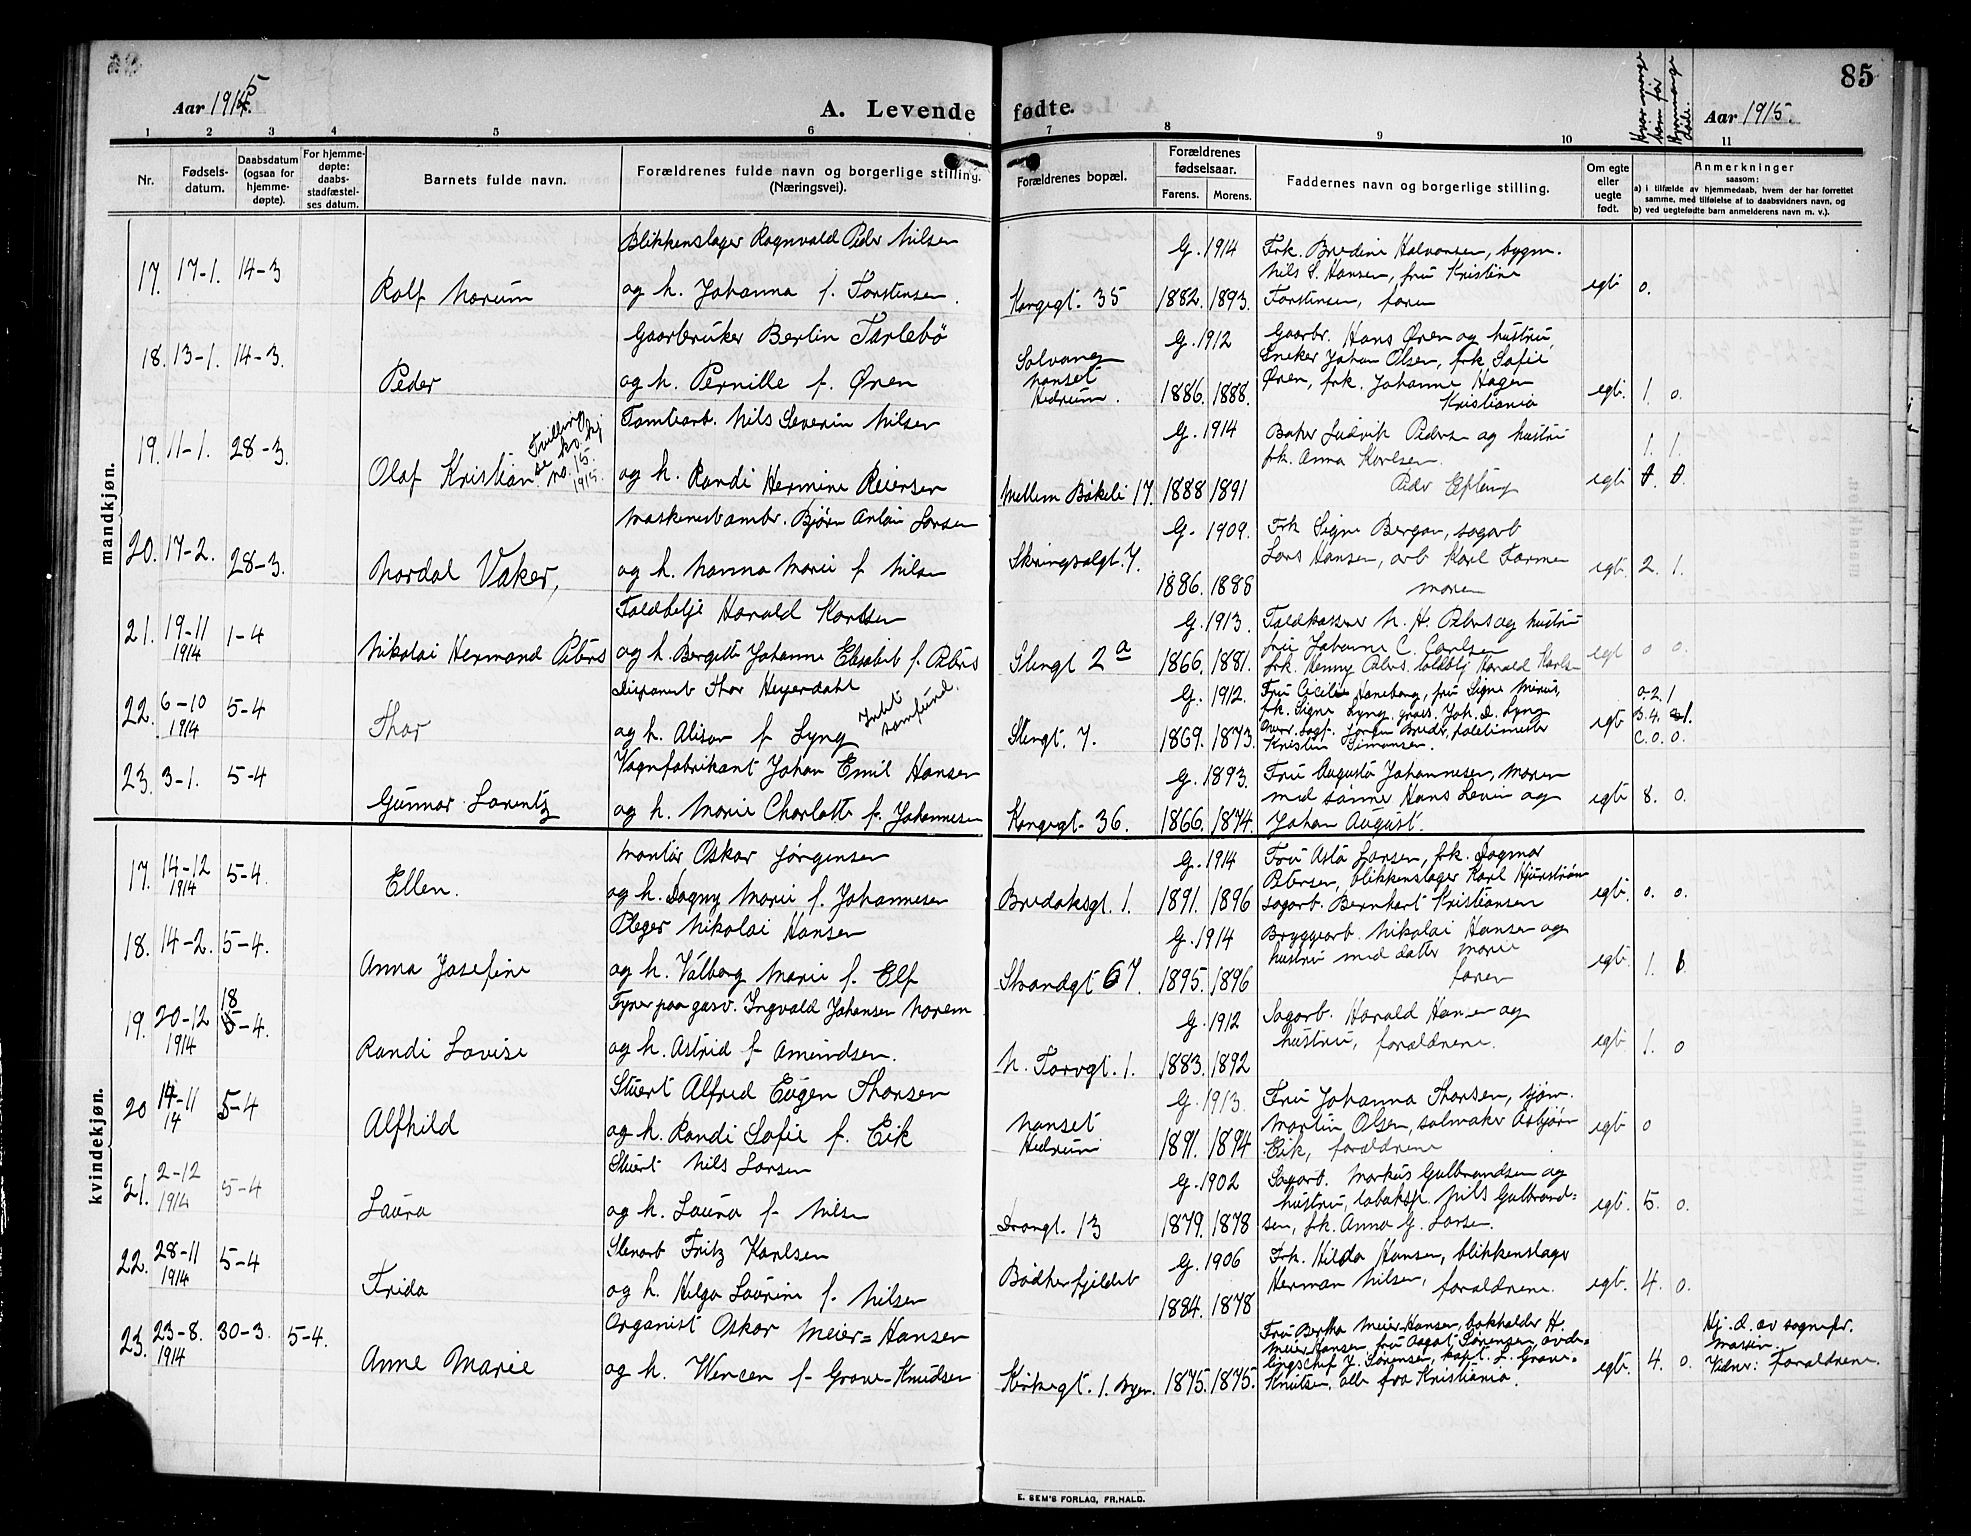 85
Aar 1915.
A. Levende fødte.
Aar 1915.
1 2 3 4 5 6 7 8 9 10 11
Nr.
Fødsels-
datum.
Daabsdatum
(ogsaa for
hjemme-
døpte).
For hjemme-
døpte:
daabs-
stadfæstel-
ses datum.
Barnets fulde navn.
Forældrenes fulde navn og borgerlige stilling.
(Næringsvei).
Forældrenes bopæl.
Forældrenes
fødselsaar.
Farens. Morens.
Faddernes navn og borgerlige stilling.
Om egte
eller
uegte
født.
Anmerkninger
saasom:
a) i tilfælde av hjemmedaab, hvem der har forrettet
samme, med tilføielse af to daabsvidners navn, og
b) ved uegtefødte barn anmelderens navn m. v.).
mandkjøn.
17. 17-1. 14-3
Rolf Norum
Blikkenslager Ragnvald Peder Nilsen
og h. Johanna f. Torstensen.
Kongegt. 35
G. 1914
1882. 1893.
Frk. Bredine Halvorsen, bygm.
Nils S. Hansen, fru Kristine
Torstensen, faren
egte 0.
18. 13-1. 14-3.
Peder
Gaarbruker Bertin Farlebø
og h. Pernille f. Øren
Solvang
Nanset
Hedrum.
G. 1912
1886. 1888.
Gaarbr. Hans Øren og hustru,
Sneker Johan Olsen, frk. Sofie
Øren, frk. Johanne Hagen
Kristiania
egte. 1. 0.
19. 11-1. 28-3.
Olaf Kristian
Tvilling
se kv.kj
no. 15.
1915.
Tomtearb. Nils Severin Nilsen
og h. Randi Hermine Reiersen
Mellem Bøkeli 17.
G. 1914
1888 1891
Baker Ludvik Pedersen og hustru
frk. Anna Karlsen.
Peder Efteng
egte 1. 1.
20. 17-2. 28-3.
Nordal Vaker,
Maskinestambr. Bjørn Anton Larsen
og h. Nanna Marie f. Nilsen
Skiringsalgt. 7.
G. 1909.
1886. 1888
Frk Signe Bergan, sagarb
Lars Hansen, arb Karl Farmen
moren
egte. 2. 1.
21. 19-11
1914
1-4
Nikolai Hermand Peters
Toldbetj Harald Karlsen
og h. Bergitte Johanne Elisabet f. Peters
Stengt 2a
G. 1913.
1866. 1881.
Toldkasserer N. H. Peters og hustru
fru Johanne C. Carlsen
frk. Henny Peters. toldbtj Harald Karlsen
egt 0 0.
22. 6-10
1914
5-4
Thor
Disponent Thor Heyerdahl
og h. Alison f Lyng
Stengt. 7.
G. 1912.
1869. 1873.
Fru Cecilie Haneborg, fru Signe Minis,
frk. Signe Lyng. Joh. D. Lyng
Kristin Simonsen.
egte
a. 2. 1
B. 4. 1.
C. 0. 0.
23. 3-1. 5-4
Gunnar Lorentz
Vognfabrikant Johan Emil Hansen
og h. Marie Charlotte f. Johannesen
Kongegt. 36.
G. 1893.
1866. 1874.
Fru Augusta Johannesen, Moren
med sønner Hans Levin og
Johan August.
egte 8. 0.
kvindekjøn.
17. 14-12
1914
5-4.
Ellen.
Montør Oskar Jørgensen
og h. Dagny Marie f. Johannesen
Bredoksgt. 1.
G. 1914
1891. 1896
Fru Asta Larsen, frk. Dagmar
Petersen, blikkenslager Karl Hjurstrøm
sagarb. Bernhart Kristiansen
egte. 0. 0.
18. 14-2. 5-4.
Anna Josefine
Pleger Nikolai Hansen
og h. Valborg Marie f. Elf
Strandgt 67.
G. 1914
1895. 1896
Bryggearb. Nikolai Hansen og
hustru med datter Marie
faren
egte. 1.
19. 20-12
1914
18-4.
Randi Lovise
Fyrer paa gasv. Ingvald Johansen Norem
og h. Astrid f. Amundsen.
N. Torvgt. 1.
G. 1912
1883. 1892
Sagarb. Harald Hansen og
hustru, forældrene.
egte 1. 0
20 14-11
14
5-4
Alfhild
Stuert Alfred Eugen Thorsen
og h. Randi Sofie f. Eik
Nanset
Hedrum
G. 1913.
1891. 1894
Fru Johanna Thorsen, sjøm.
Martin Olsen, salmaker Asbjørn
Eik, forældrene
egte 0
21. 2-12
1914
5-4
Laura
Stuert Nils Larsen
og h. Laura f. Nilsen
Drongt. 13
G. 1902
1879. 1878
Sagarb. Markus Gulbrandsen og
hustru, tobaksp. Nils Gulbrand=
sen, frk. Anna G. Larsen.
egte. 5. 0.
22. 28-11
1914
5-4
Frida
Stenarb Fritz Karlsen
og h. Helga Laurine f. Nilsen
Bødkerfjeldet
G. 1906
1884. 1878
Frk. Hilda Hansen, blikkenslager
Herman Nilsen, forældrene.
egte. 4. 0.
23. 23-8.
1914
30-3. 5-4.
Anne Marie
Organist Oskar Meier=Hansen
og h. Wencen f. Grove-Knudsen
Kirkegt. 1. Byen.
1875. 1875.
Fru Bertha Meier Hansen, bokholder H.
Meier Hansen, fru Aagot Sørensen, avde=
lingschef J. Sørensen, kapt. L. Grove-
Knutsen. alle fra Kristiania.
egte. 4. 0.
Hj. d. av sognepr.
Martin.
Vidner: Forældrene.
E. SEM'S FORLAG, FR.HALD.